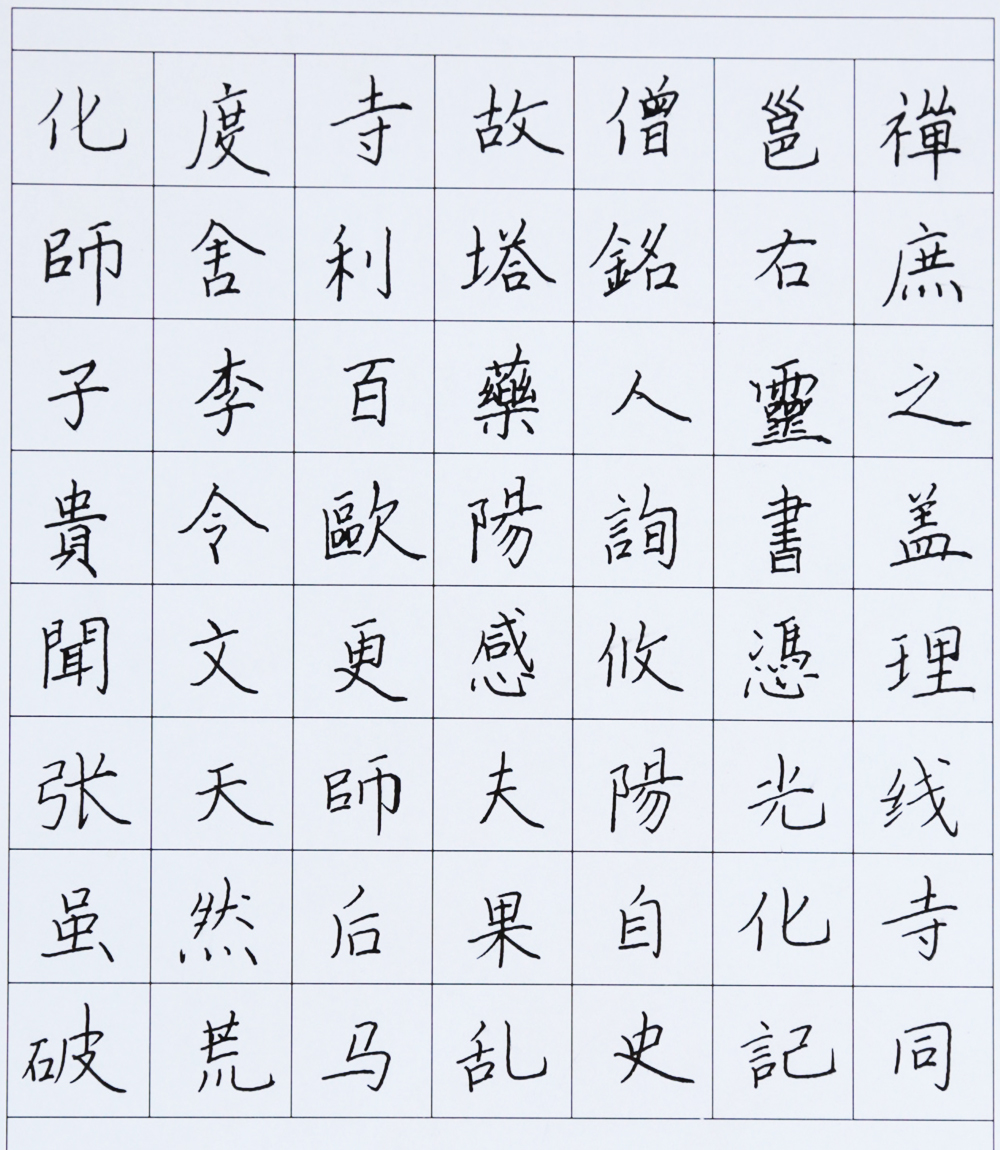 化度寺故僧邕禪
師舍利塔銘右庶
子李百藥人靈之
貴令歐陽詢書盖
聞文更感攸憑理
张天師夫陽光线
虽然后果自化寺
破荒马乱史記同